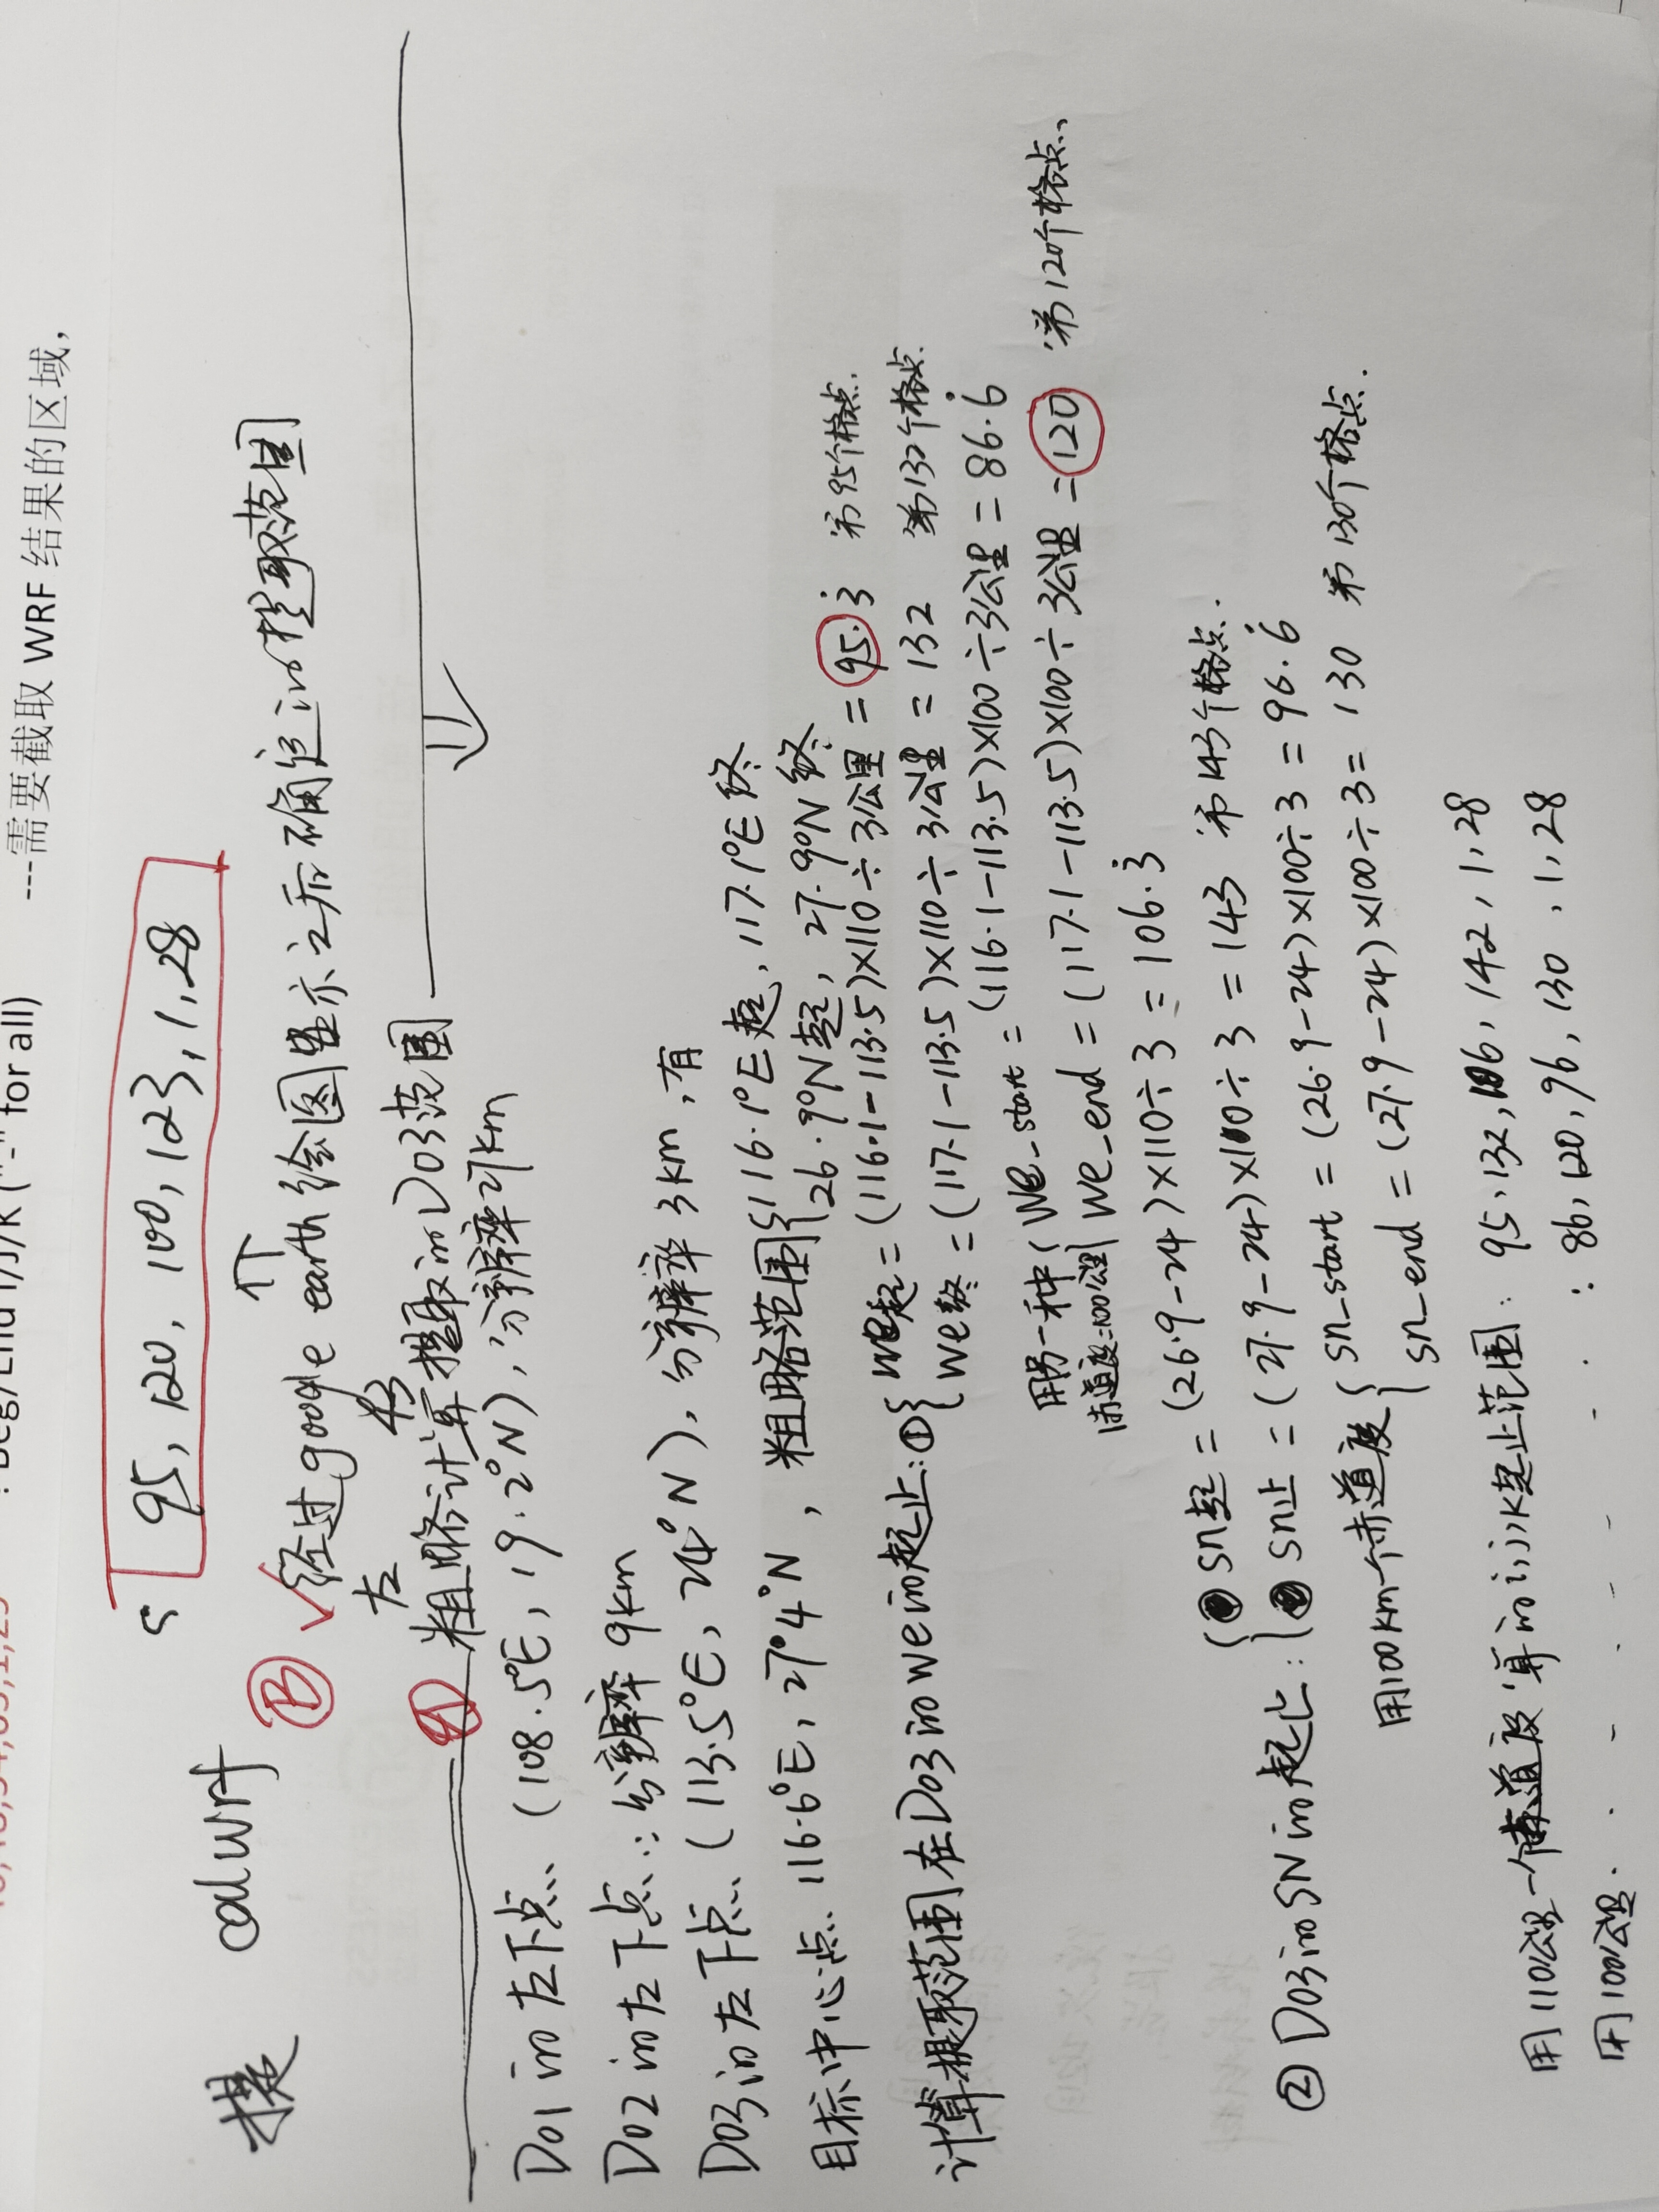 : Beg/End I/J/K ("-" for all)
---需要截取 WRF 结果的区域,
95, 120, 100, 123, 1, 28
提 calwrf
B ✓ 经过google earth绘图显示之后确定的提取范围
左 右
粗略计算提取的D03范围
D01的左下点 (108.5°E, 19.2°N), 分辨率27km
D02的左下点: 分辨率9km
D03的左下点 (113.5°E, 24°N), 分辨率3km, 有
目标中心点 116.6°E, 27.4°N, 粗略范围{116.1°E起, 117.1°E终
26.9°N起, 27.9°N终
计算提取范围在D03的we的起止: ①{we起=(116.1-113.5)×110÷3公里=95.3 第95个格点.
we终=(117.1-113.5)×110÷3公里=132 第132个格点.
用另一种 {we_start=(116.1-113.5)×100÷3公里=86.6
1赤道度=100公里 we_end=(117.1-113.5)×100÷3公里=120 第120个格点
② D03的SN的起止: {sn起=(26.9-24)×110÷3=106.3
sn止=(27.9-24)×110÷3=143 第143个格点.
用100km一个赤道度 {sn_start=(26.9-24)×100÷3=96.6
sn_end=(27.9-24)×100÷3=130 第130个格点.
用110公里一个赤道度算的i,j,k起止范围: 95, 132, 106, 142, 1, 28
用100公里 : 86, 120, 96, 130, 1, 28